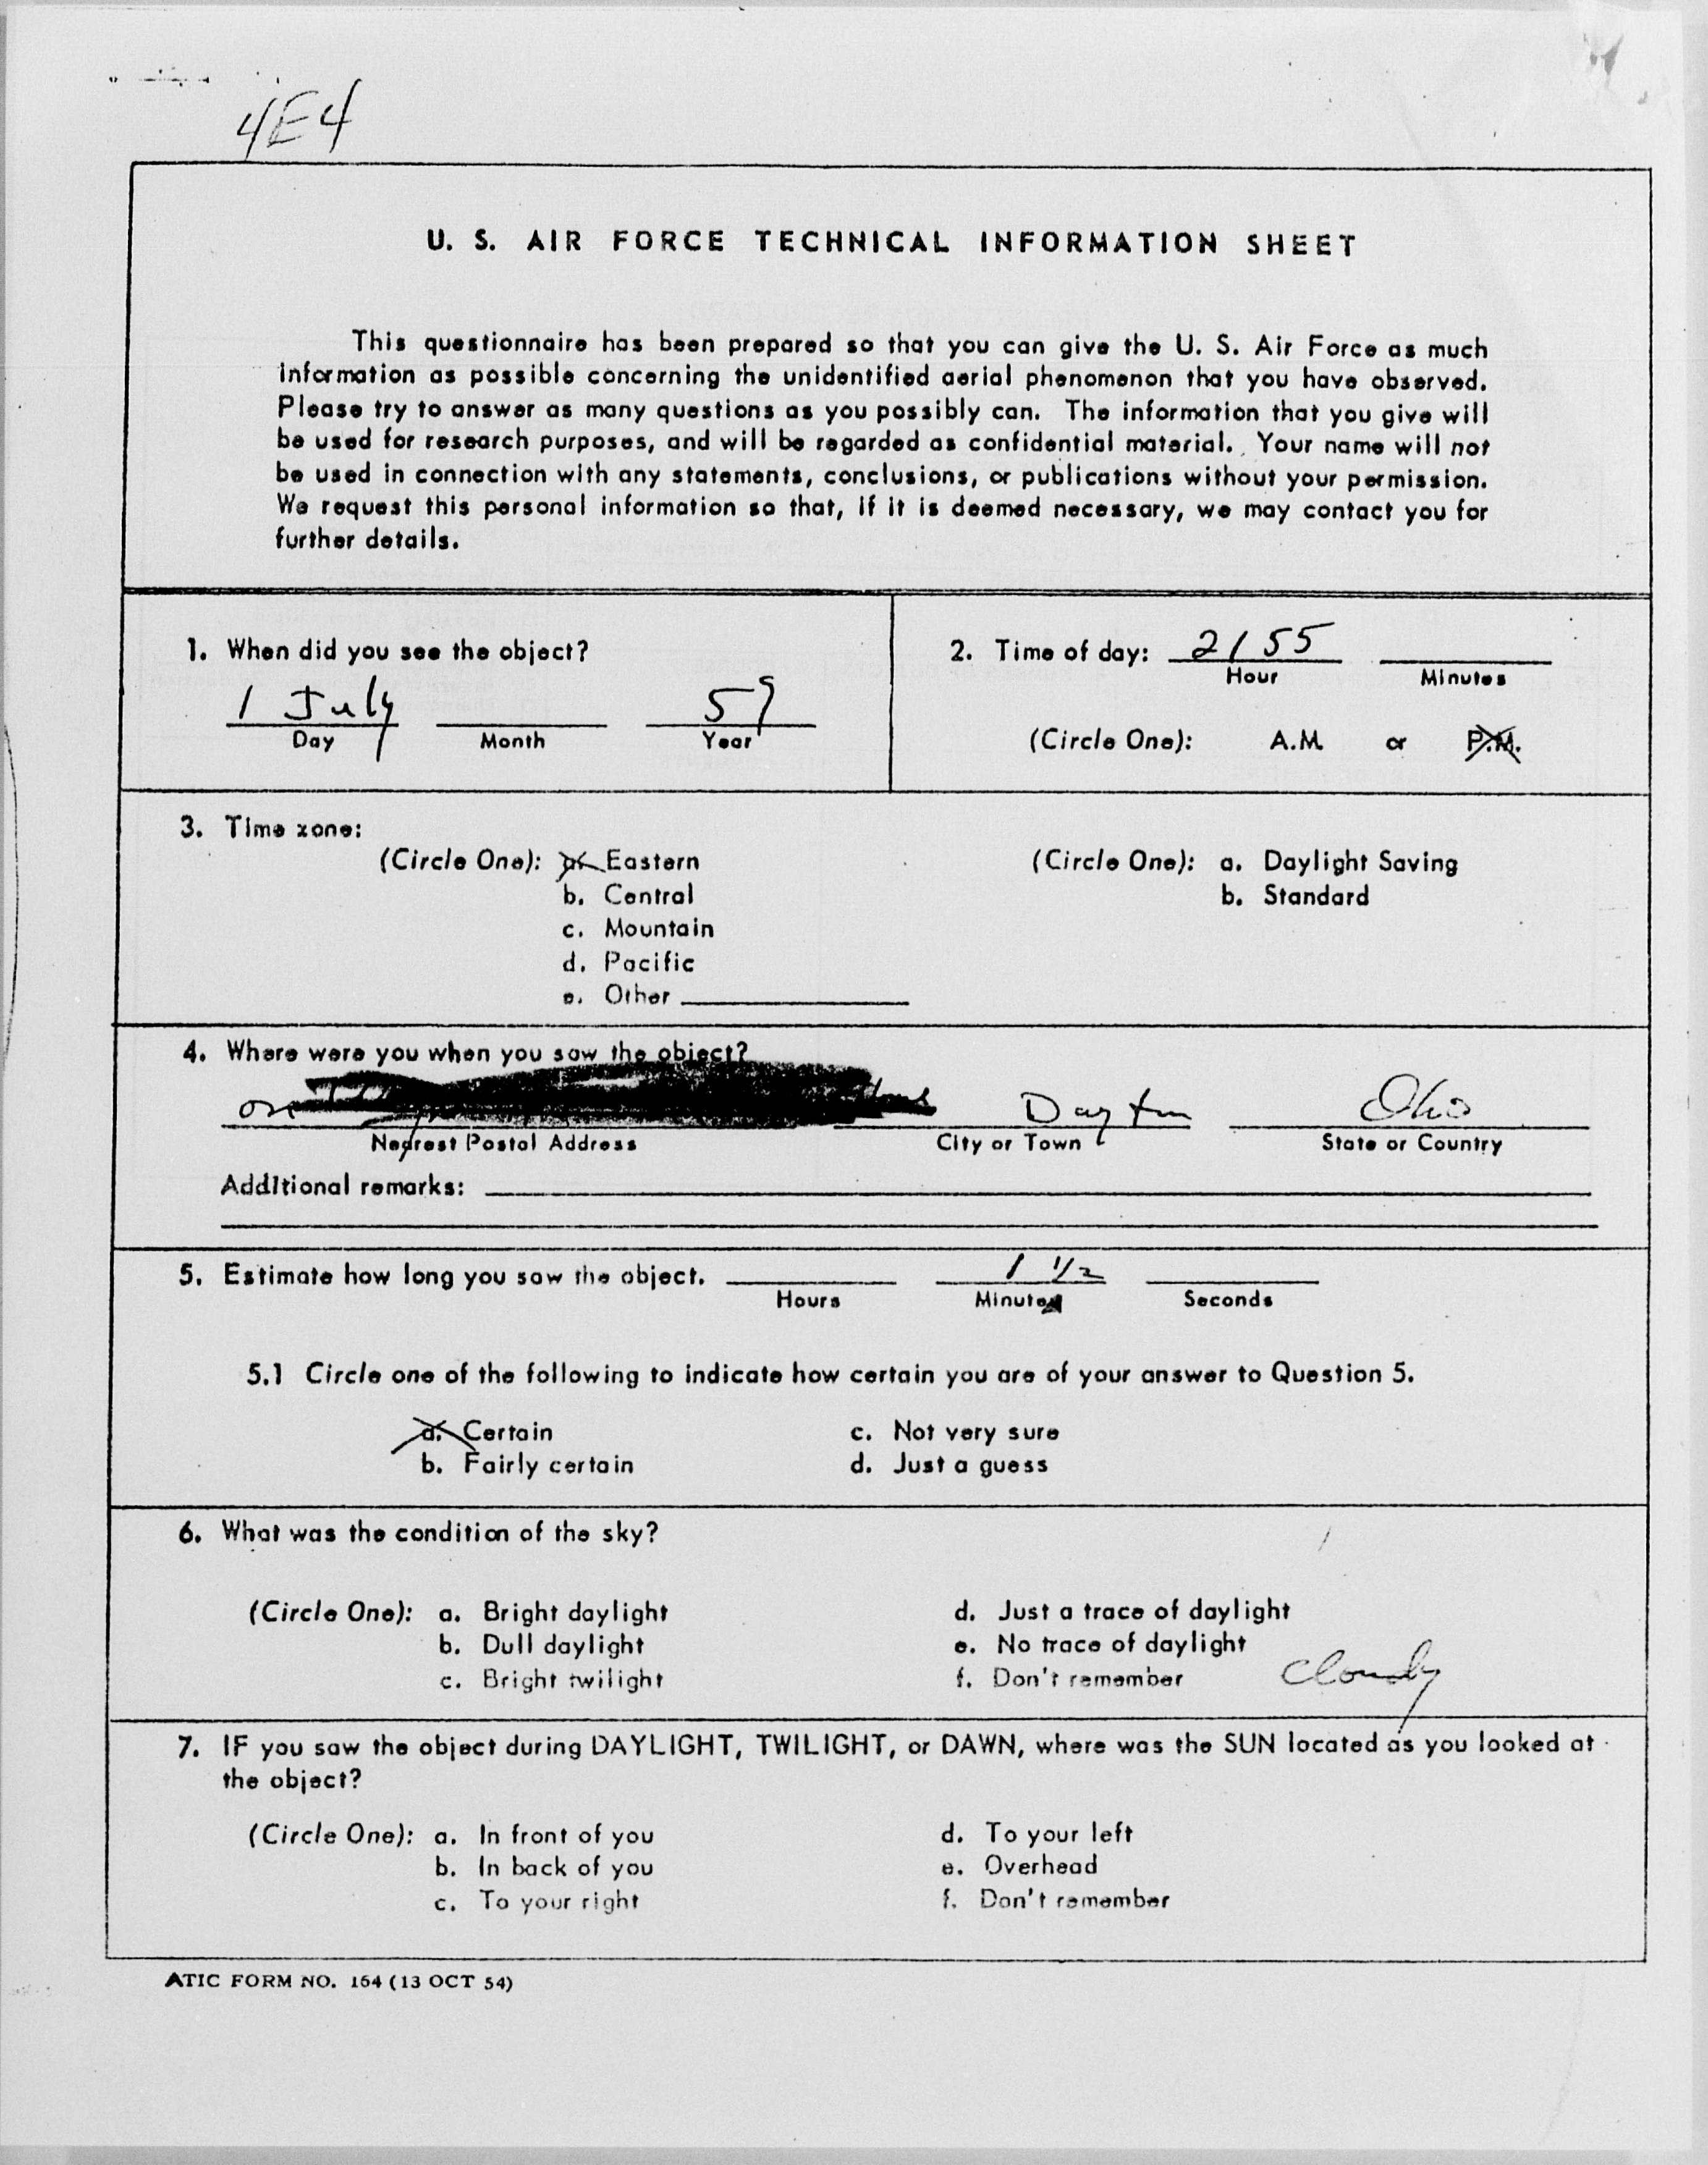 4E4
U. S. AIR FORCE TECHNICAL INFORMATION SHEET
This questionnaire has been prepared so that you can give the U. S. Air Force as much
information as possible concerning the unidentified aerial phenomenon that you have observed.
Please try to answer as many questions as you possibly can. The information that you give will
be used for research purposes, and will be regarded as confidential material. Your name will not
be used in connection with any statements, conclusions, or publications without your permission.
We request this personal information so that, if it is deemed necessary, we may contact you for
further details.
1. When did you see the object?
1 July 59
Day Month Year
2. Time of day: 2155
Hour Minutes
(Circle One): A.M. or P.M.
3. Time zone:
(Circle One): a. Eastern
b. Central
c. Mountain
d. Pacific
e. Other
(Circle One): a. Daylight Saving
b. Standard
4. Where were you when you saw the object?
on Dayton Ohio
Nearest Postal Address City or Town State or Country
Additional remarks:
5. Estimate how long you saw the object. 1 1/2
Hours Minutes Seconds
5.1 Circle one of the following to indicate how certain you are of your answer to Question 5.
a. Certain
b. Fairly certain
c. Not very sure
d. Just a guess
6. What was the condition of the sky?
(Circle One): a. Bright daylight
b. Dull daylight
c. Bright twilight
d. Just a trace of daylight
e. No trace of daylight
f. Don't remember cloudy
7. IF you saw the object during DAYLIGHT, TWILIGHT, or DAWN, where was the SUN located as you looked at
the object?
(Circle One): a. In front of you
b. In back of you
c. To your right
d. To your left
e. Overhead
f. Don't remember
ATIC FORM NO. 164 (13 OCT 54)